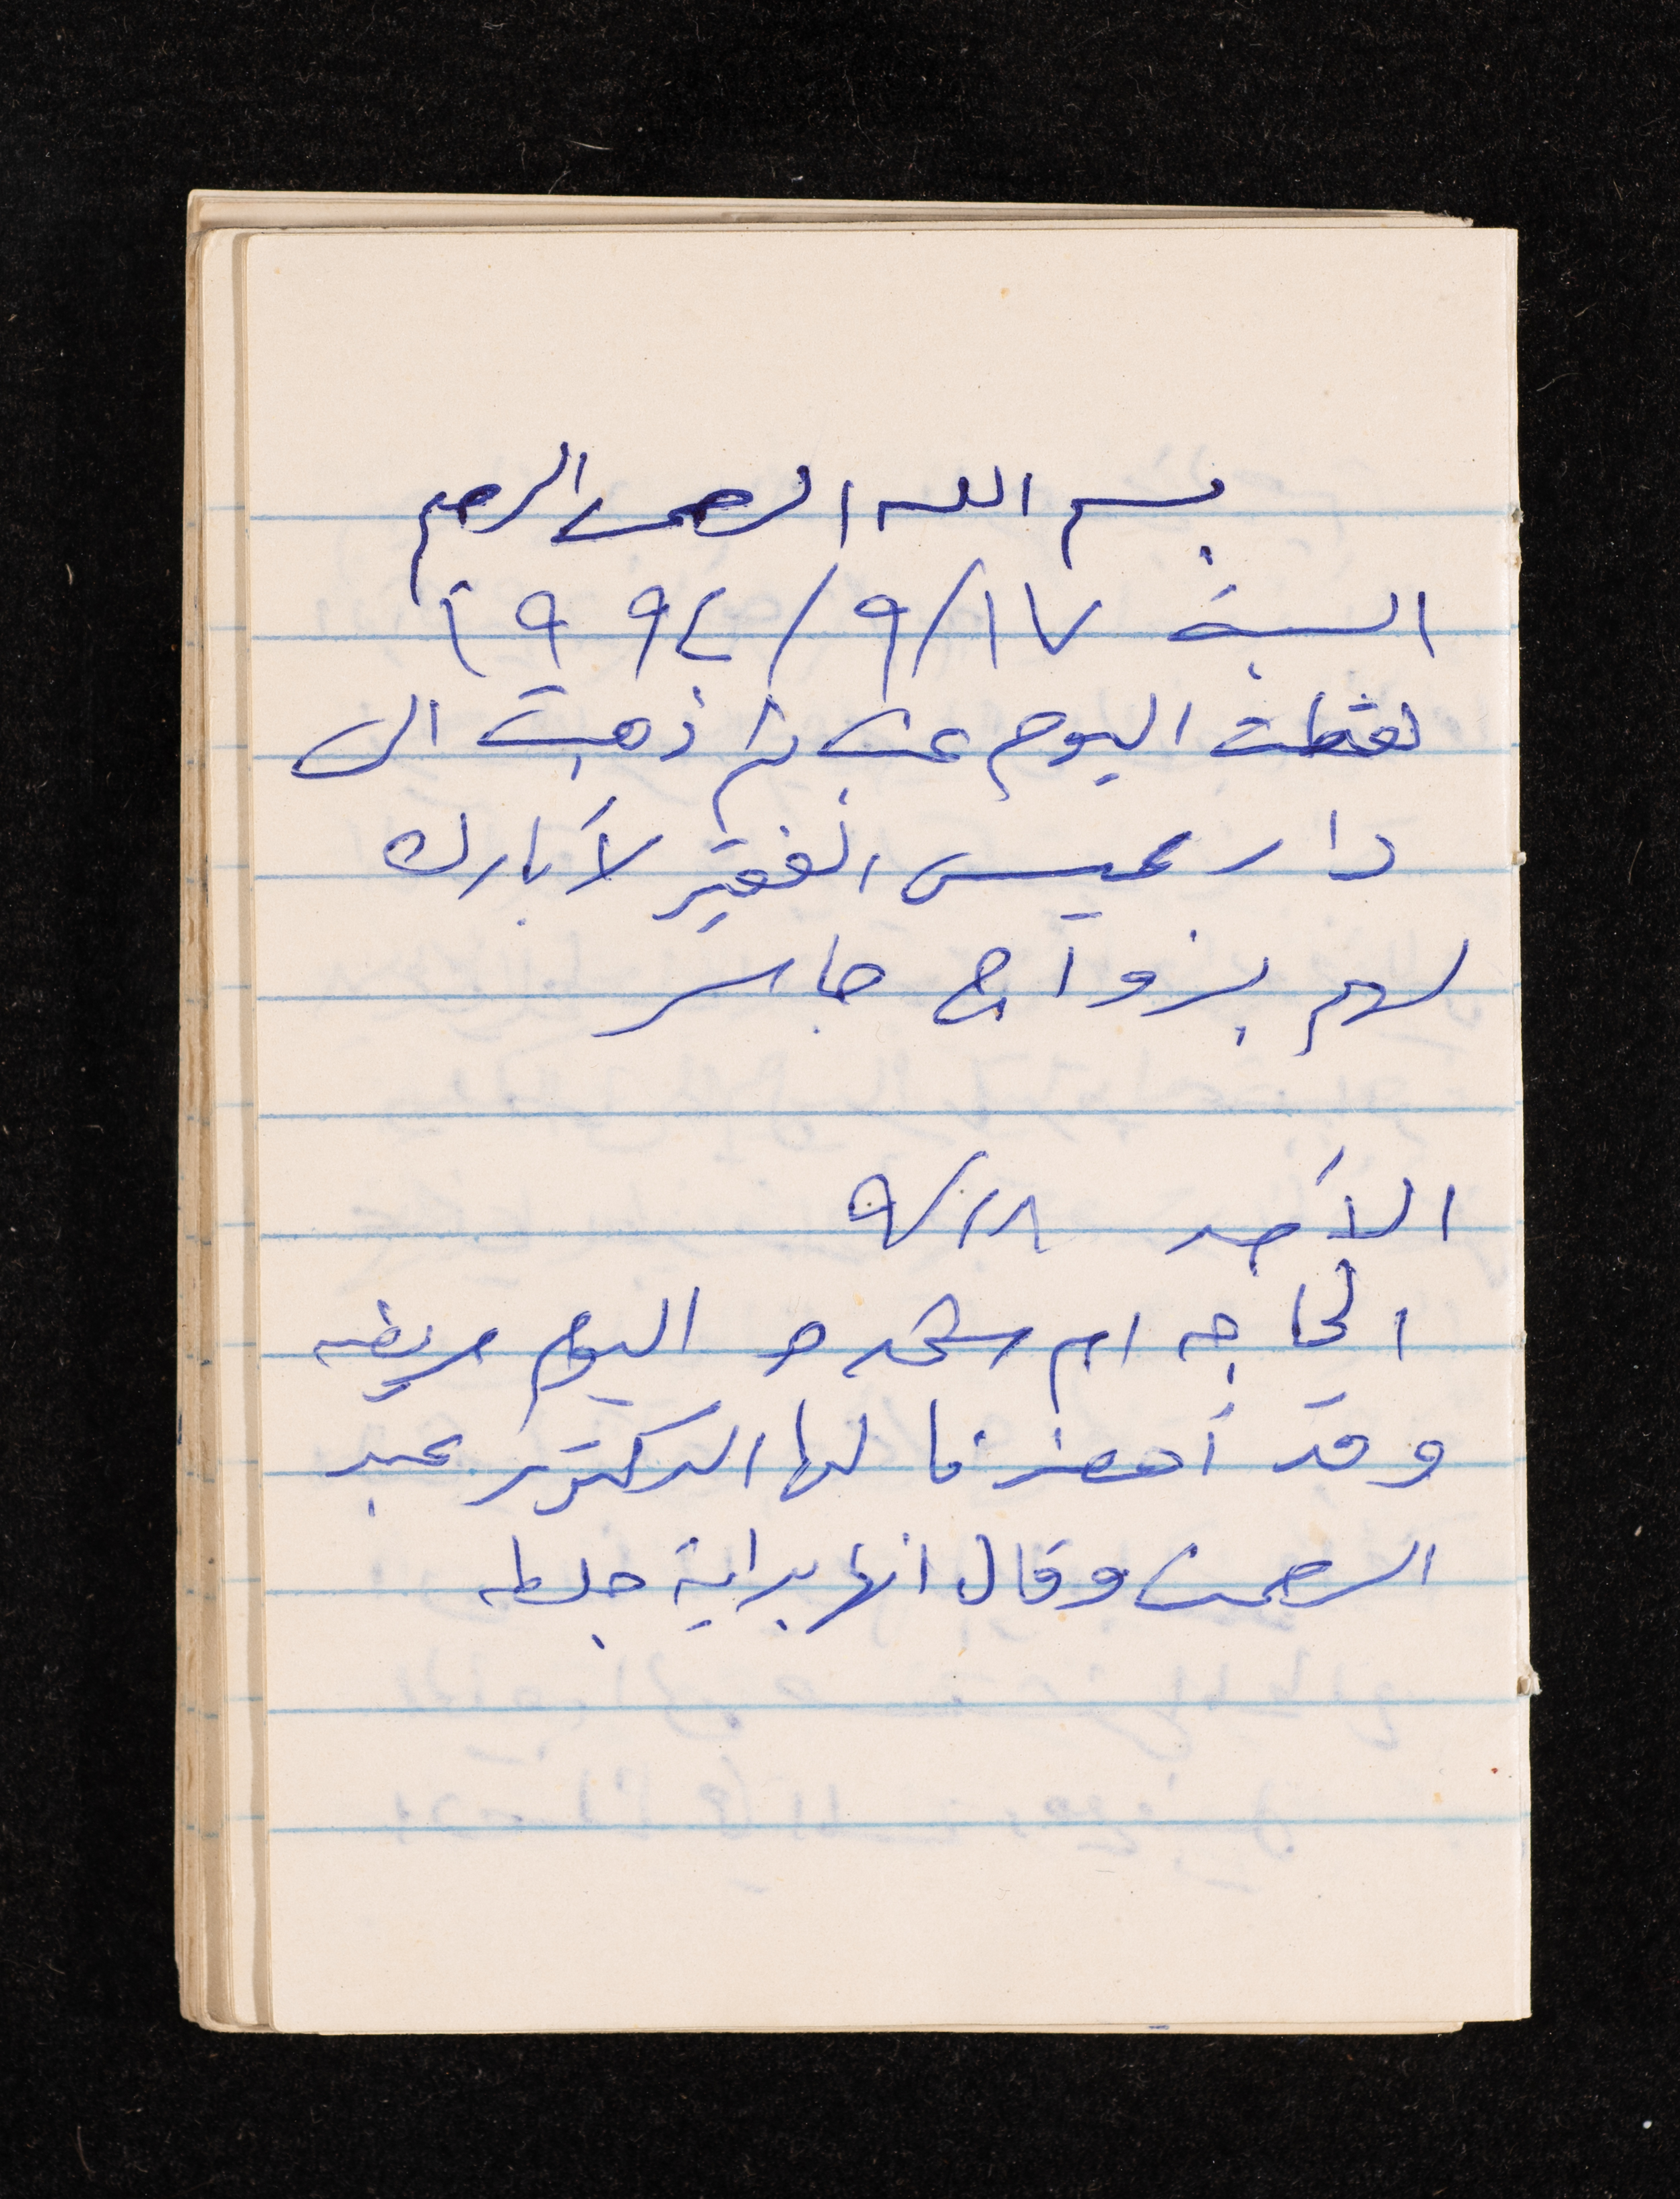 بسم الله الرحمن الرحيم
السبت ١٧/٩/١٩٩٤
اليوم ثم ذهبت الى
دار عميس الفقير لأبارك
لهم بزواج جاسر
الأحد ١٨/٩
الحاجه ام شحده اليوم مريضه
وقد أحضرنا لها الدكتور عبد
الرحمن وقال انها بداية جلطه